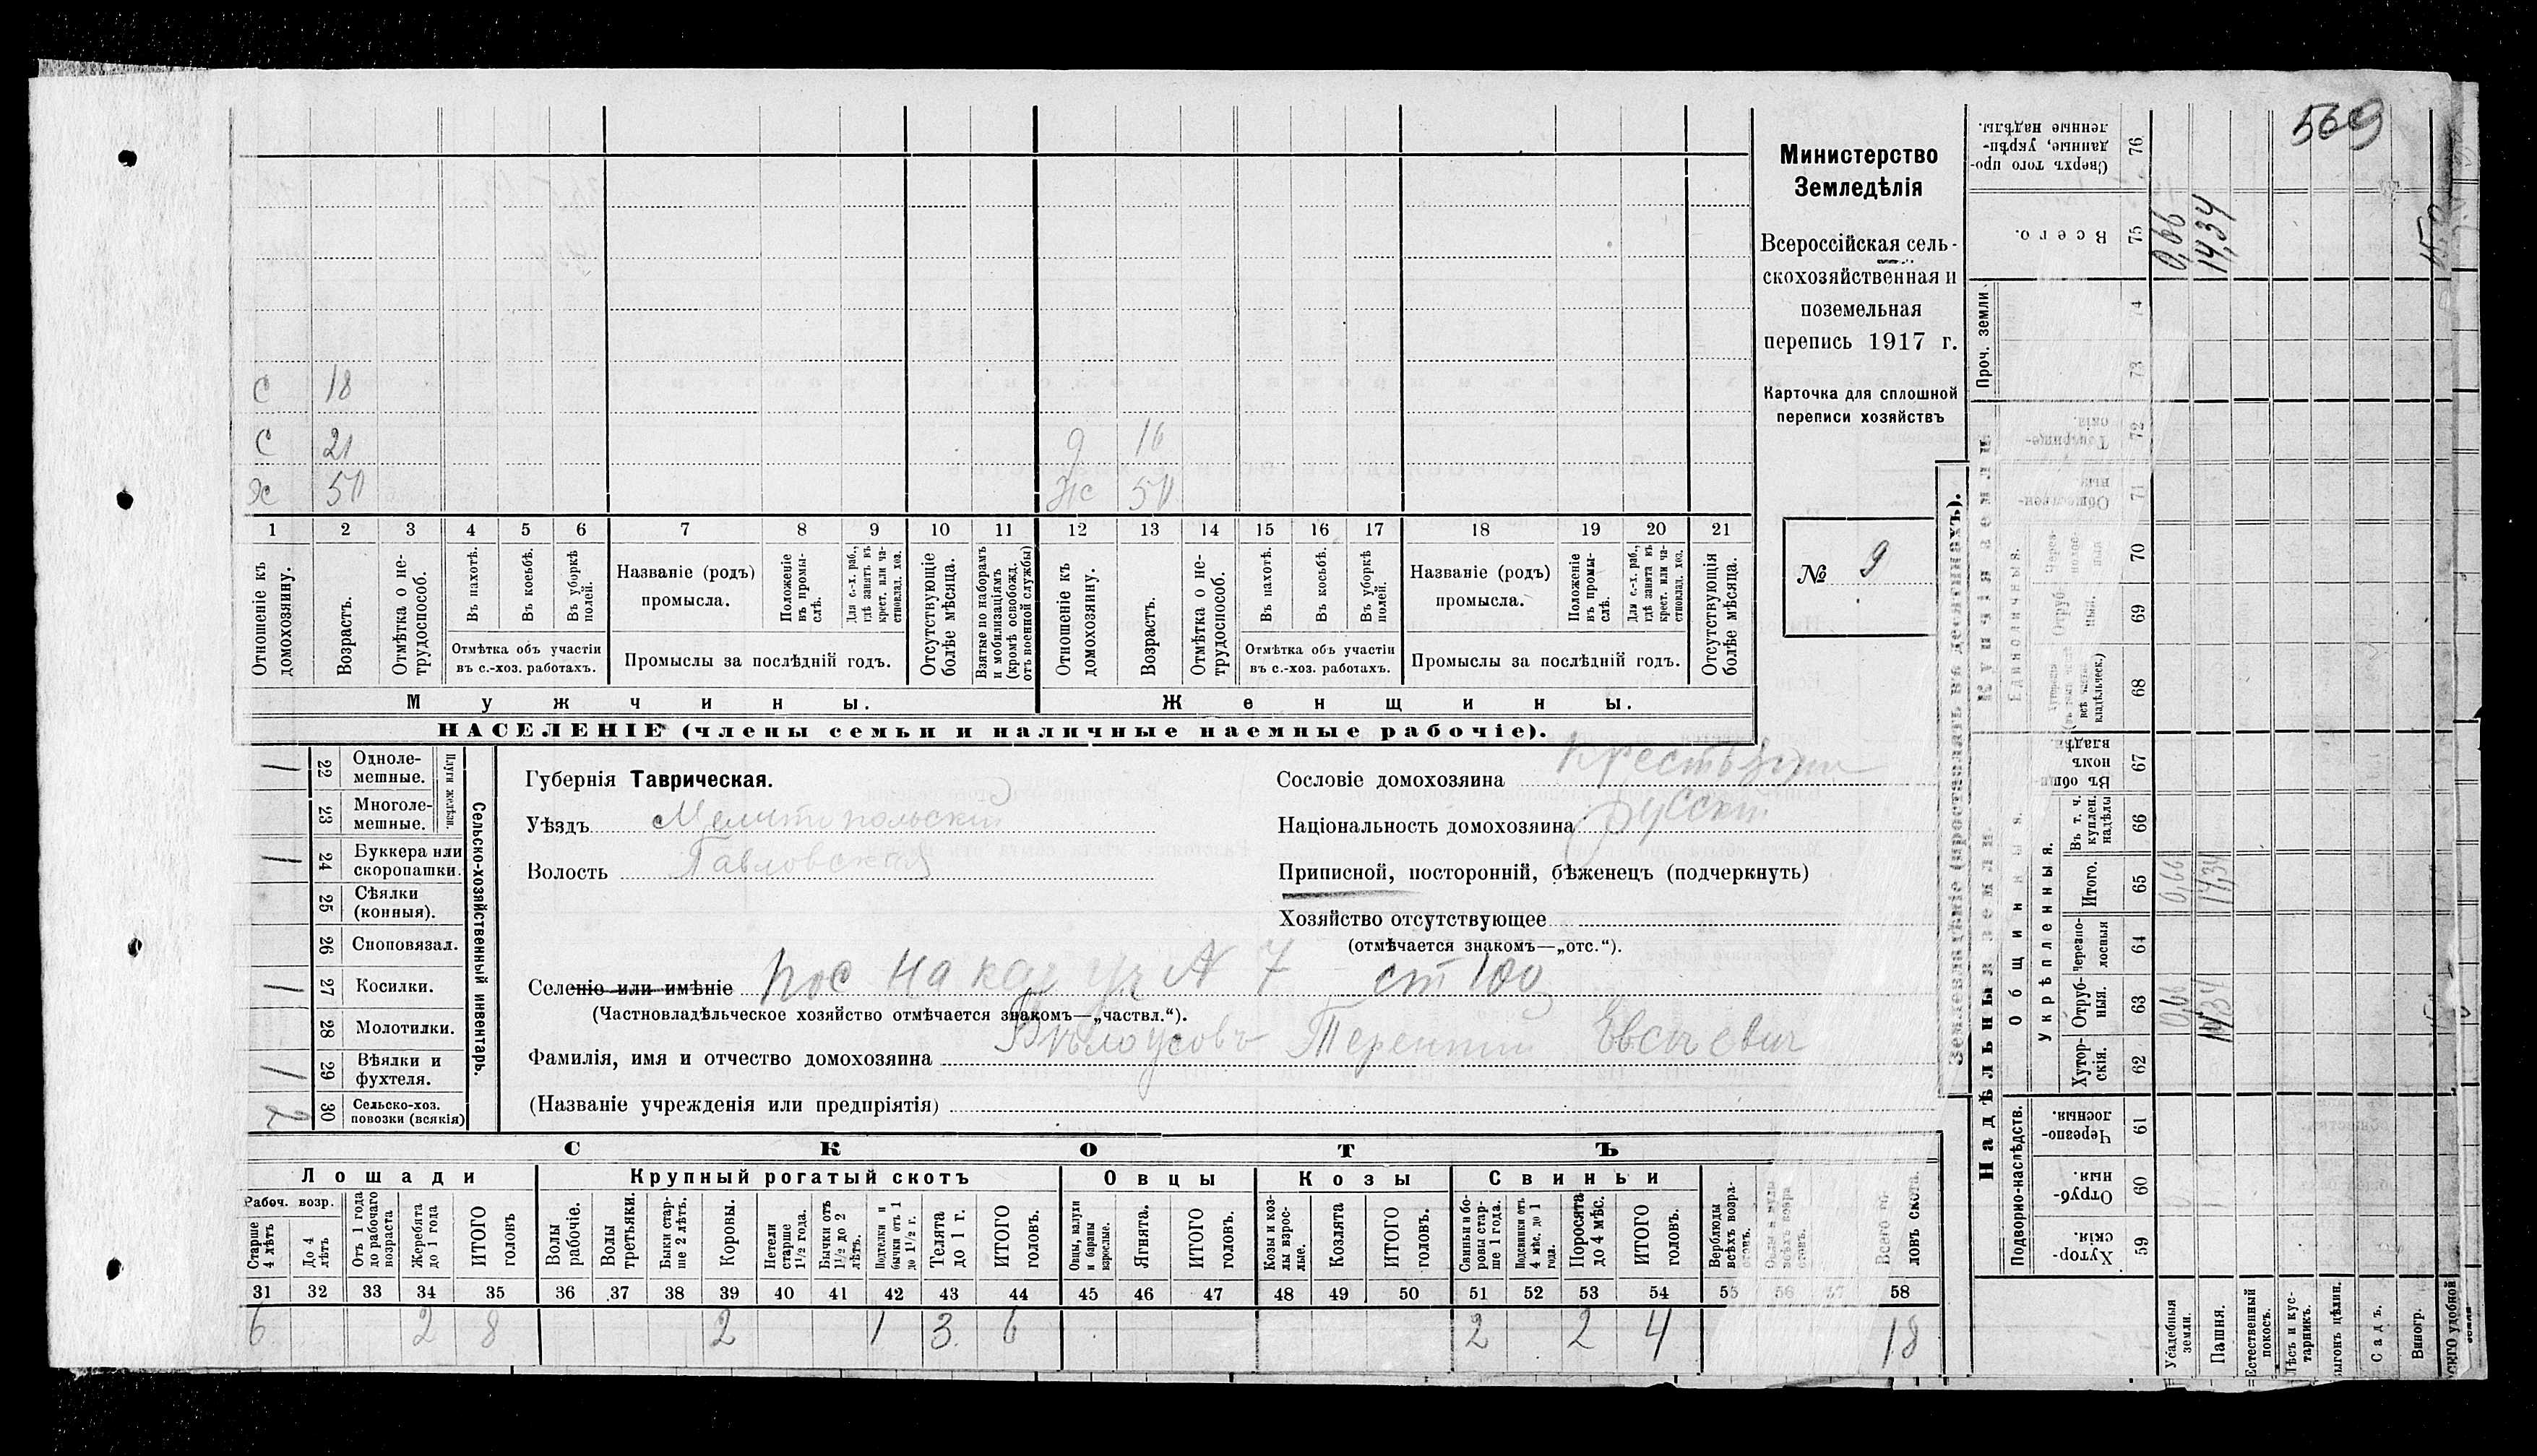 569
Министерство
Земледѣлія
Всероссійская сель-
скохозяйственная и
поземельная
перепись 1917 г.
Карточка для сплошной
переписи хозяйствъ
№ 9
С 18
С 21
Х 50
д 16
Ж 50
1 2 3 4 5 6 7 8 9 10 11 12 13 14 15 16 17 18 19 20 21
Отношеніе къ домохозяину.
Возрастъ.
Отмѣтка о не-
трудоспособ.
Въ пахотѣ.
Въ косьбѣ.
Въ уборкѣ полей.
Отмѣтка объ участіи
въ с.-хоз. работахъ.
Названіе (родъ)
промысла.
Положеніе въ промы-
слѣ.
Для с.-х. раб., гдѣ занятъ въ крест. или ча-
стновлад. хоз.
Промыслы за послѣдній годъ.
Отсутствующіе
болѣе мѣсяца.
Взятые по наборамъ
и мобилизаціямъ
(кромѣ освобожд.
отъ военной службы)
Отношеніе къ
домохозяину.
Возрастъ.
Отмѣтка о не-
трудоспособ.
Въ пахотѣ.
Въ косьбѣ.
Въ уборкѣ полей.
Отмѣтка объ участіи
въ с.-хоз. работахъ.
Названіе (родъ)
промысла.
Положеніе въ промы-
слѣ.
Для с.-х. раб., гдѣ занята въ крест. или ча-
стновлад. хоз.
Промыслы за послѣдній годъ.
Отсутствующія
болѣе мѣсяца.
Мужчины. Женщины.
НАСЕЛЕНІЕ (члены семьи и наличные наемные рабочіе).
Сельско-хозяйственный инвентарь.
Плуги желѣзн.
1 22 Одноле-
мешные.
23 Многоле-
мешные.
1 24 Буккера или
скоропашки.
25 Сѣялки
(конныя).
26 Сноповязал.
1 27 Косилки.
28 Молотилки.
1 29 Вѣялки и
фухтеля.
2 30 Сельско-хоз.
повозки (всякія)
Губернія Таврическая.
Уѣздъ Мелитопольскій
Волость Павловская
Сословіе домохозяина крестьянин
Національность домохозяина русскій
Приписной, посторонній, бѣженецъ (подчеркнуть)
Хозяйство отсутствующее
(отмѣчается знакомъ—„отс.“).
Селеніе или имѣніе пос На каз уч № 7 ст 100
(Частновладѣльческое хозяйство отмѣчается знакомъ—„частвл.“).
Фамилія, имя и отчество домохозяина Бѣлоусовъ Терентій Евсѣевич
(Названіе учрежденія или предпріятія)
СКОТЪ
Лошади Крупный рогатый скотъ Овцы Козы Свиньи
Рабоч. возр.
Старше 4 лѣтъ
До 4 лѣтъ
Отъ 1 года до рабочаго возраста
Жеребята до 1 года
ИТОГО головъ
Волы рабочіе.
Волы третьяки.
Быки стар-
ше 2 лѣтъ.
Коровы.
Нетели старше 1½ года.
Бычки отъ 1½ до 2 лѣтъ.
Подтелки и бычки отъ 1 до 1½ г.
Телята до 1 г.
ИТОГО головъ.
Овцы, валухи и бараны взрослые.
Ягнята.
ИТОГО головъ.
Козы и коз-
лы взрос-
лые.
Козлята
ИТОГО головъ.
Свиньи и бо-
ровы стар-
ше 1 года.
Подсвинки отъ 4 мѣс. до 1 года.
Поросята до 4 мѣс.
ИТОГО головъ.
Верблюды всѣхъ возра-
стовъ.
Ослы и мулы всѣхъ возра
стовъ.
Всего го-
ловъ скота.
31 32 33 34 35 36 37 38 39 40 41 42 43 44 45 46 47 48 49 50 51 52 53 54 55 56 57 58
6 2 8 2 1 3 6 2 2 4 18
Землевладѣніе (проставлять въ десятинахъ).
Надѣльныя земли. Купчія земли
Сверхъ того про-
данные, укрѣп-
ленные надѣлы. 76
Всего. 75 0,66 14,34
Проч. земли
74
73
Товарище-
скія. 72
Обществен-
ныя 71
Единоличныя.
Черезполос-
ныя 70
Отруб-
ныя. 69
68
Въ общин-
номъ владѣн. 67
Общинныя.
Укрѣпленныя.
Въ т. ч. куплен. надѣлы 66
Итого. 65 0,66 14,34
Черезпо-
лосныя 64
Отруб-
ныя. 63 0,66 14,34
Хутор-
скія. 62
Подворно-наслѣдств.
Черезпо-
лосныя. 61
Отруб-
ныя. 60
Хутор-
скія. 59
Усадебныя земли.
Пашня.
Естественный покосъ.
Лѣсъ и кус-
тарникъ.
Выгонъ цѣлин.
Садъ.
Виногр.